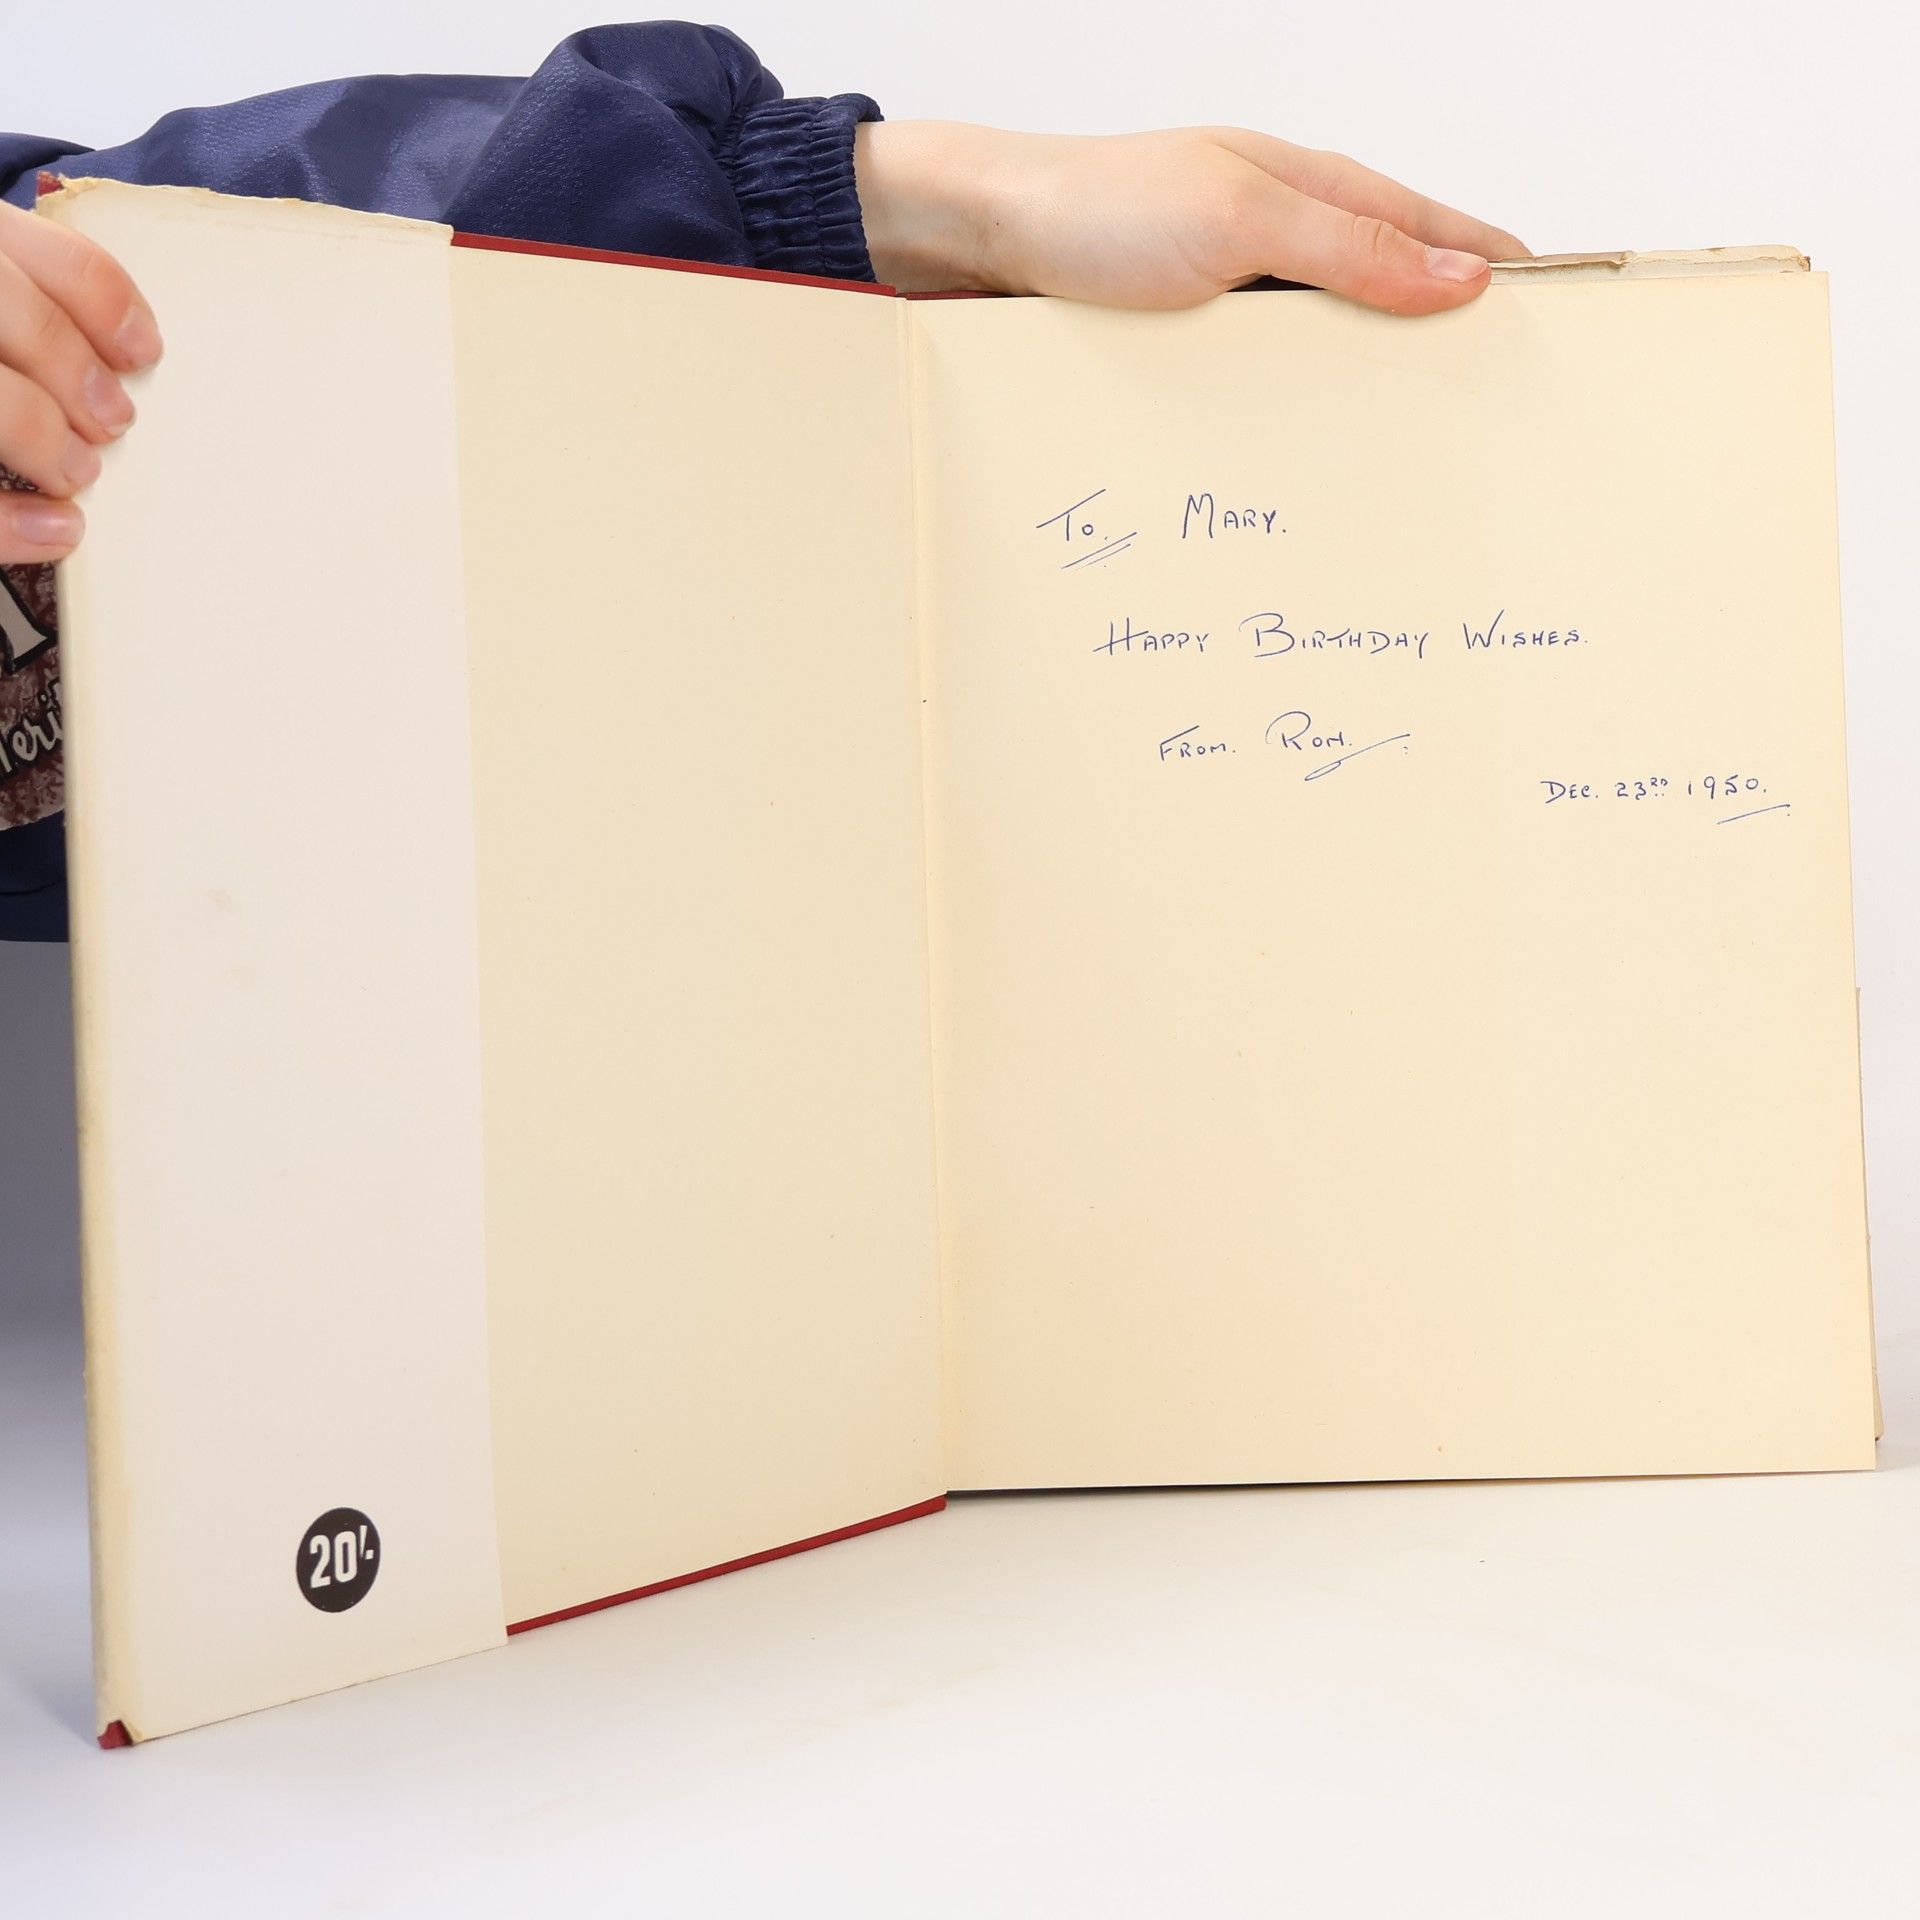 To. Mary.
Happy Birthday Wishes.
From. Ron.
Dec. 23rd 1950.
20/-